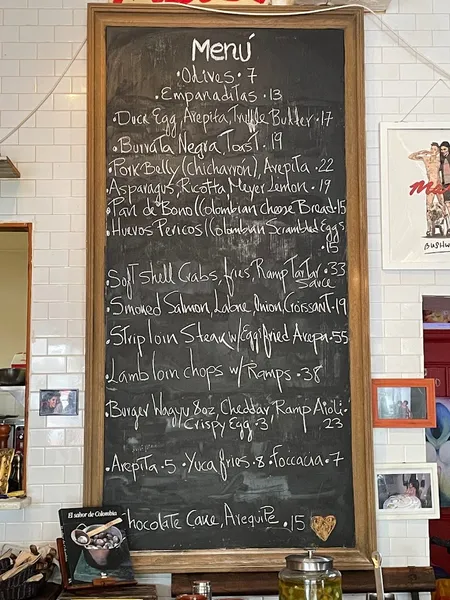 Menú
• Olives • 7
• Empanaditas • 13
• Duck Egg, Arepita, Truffle Butter • 17
• Burrata Negra, Toast • 19
• Pork Belly (Chicharrón), Arepita • 22
• Asparagus, Ricotta Meyer Lemon • 19
• Pan de Bono (Colombian Cheese Bread • 15
• Huevos Pericos (Colombian Scrambled Eggs
• 15
• Soft Shell Crabs, fries, Ramp Tartar • 33
Sauce
• Smoked Salmon, Labne, Onion, Croissant • 19
• Striploin Steak w/ Egg fried Arepa • 55
• Lamb loin chops w/ Ramps • 38
• Burger Wagyu 8oz, Cheddar, Ramp Aioli •
Crispy Egg • 3 23
• Arepita • 5 • Yuca fries • 8 • Foccacia • 7
Chocolate Cake, Arequipe • 15
El sabor de Colombia
BUSHW